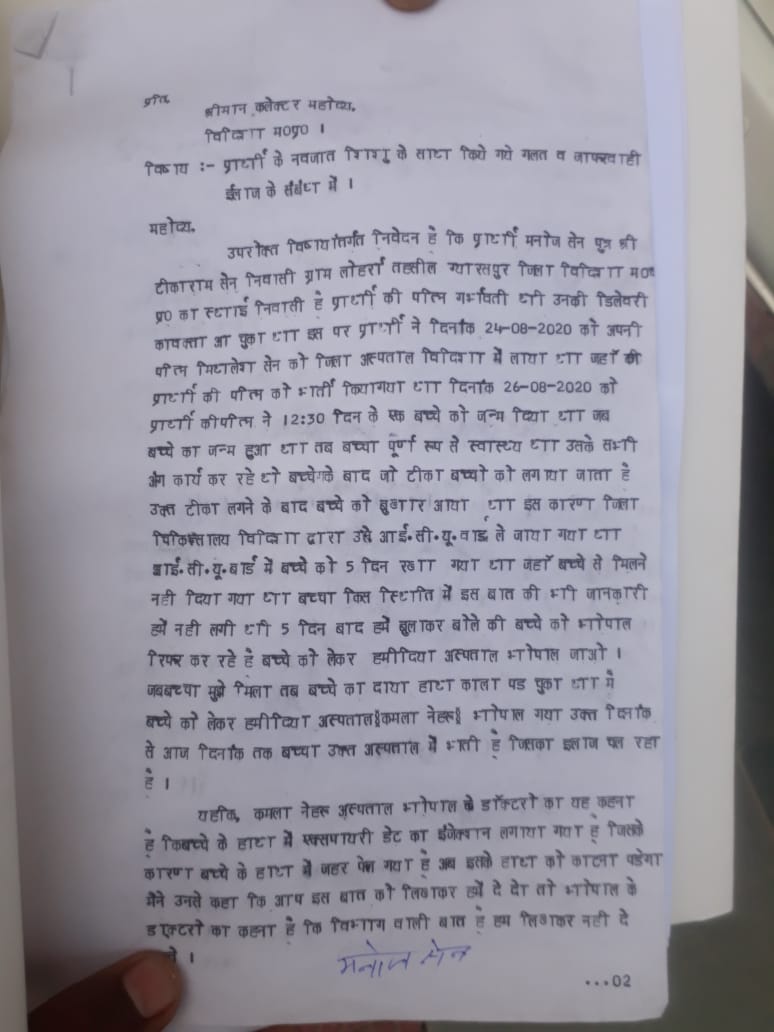 प्रति,
श्रीमान कलेक्टर महोदय,
विदिशा म०प्र० ।
विषय :- प्रार्थी के नवजात शिशु के साथ किये गये गलत व जाफरवाही
ईलाज के संबंध में ।
महोदय,
उपरोक्त विषयांतर्गत निवेदन है कि प्रार्थी मनोज सेन पुत्र श्री
टीकाराम सेन निवासी ग्राम लोहर्रा तहसील ग्यारसपुर जिला विदिशा म०
प्र० का स्थाई निवासी है प्रार्थी की पत्नि गर्भवती थी उनकी डिलेवरी
का वक्ता आ चुका था इस पर प्रार्थी ने दिनांक 24-08-2020 को अपनी
पत्नि मिथलेश सेन को जिला अस्पताल विदिशा में लाया था जहाँ की
प्रार्थी की पत्नि को भर्ती कियागया था दिनांक 26-08-2020 को
प्रार्थी कीपत्नि ने 12:30 दिन के एक बच्चे को जन्म दिया था जब
बच्चे का जन्म हुआ था तब बच्चा पूर्ण रूप से स्वास्थ्य था उसके सभी
अंग कार्य कर रहे थे बच्चेके बाद जो टीका बच्चो को लगाया जाता है
उक्त टीका लगने के बाद बच्चे को बुखार आया था इस कारण जिला
चिकित्सालय विदिशा द्वारा उसे आई.सी.यू.वार्ड ले जाया गया था
आई.सी.यू.बार्ड में बच्चे को 5 दिन रखा गया था जहाँ बच्चे से मिलने
नही दिया गया था बच्चा किस स्थिति में इस बात की भी जानकारी
हमें नही लगी थी 5 दिन बाद हमें बुलाकर बोले की बच्चे को भोपाल
रिफर कर रहे है बच्चे को लेकर हमीदिया अस्पताल भोपाल जाओ ।
जबबच्चा मुझे मिला तब बच्चे का दाया हाथ काला पड चुका था मैं
बच्चे को लेकर हमीदिया अस्पताल§कमला नेहरू§ भोपाल गया उक्त दिनांक
से आज दिनांक तक बच्चा उक्त अस्पताल में भर्ती है जिसका इलाज चल रहा
है ।
यहकि, कमला नेहरू अस्पताल भोपाल के डॉक्टरो का यह कहना
है किबच्चे के हाथ में एक्सपायरी डेट का इंजेक्शन लगाया गया है जिसके
कारण बच्चे के हाथ में जहर फेल गया है अब इसके हाथ को काटना पडेगा
मैंने उनसे कहा कि आप इस बात को लिखकर हमें दे दो तो भोपाल के
डाक्टरो का कहना है कि विभाग वाली बात है हम लिखकर नही दे
।
मनोज सेन
...02